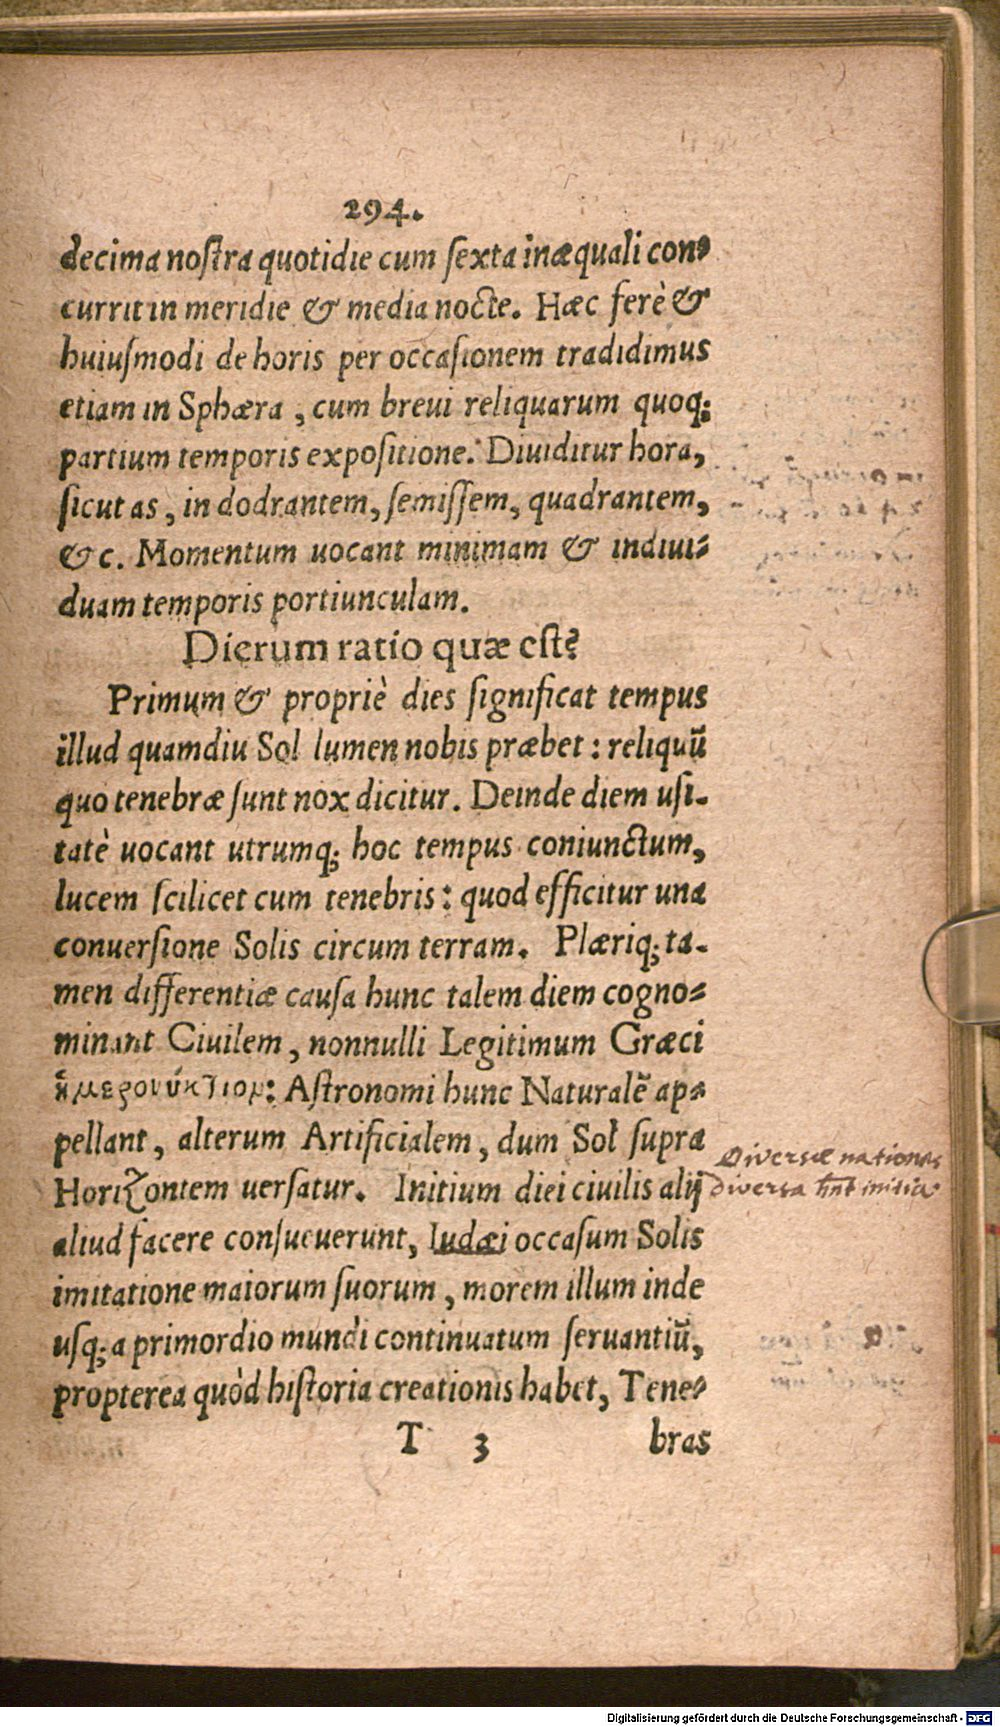 294.
decima nostra quotidie cum sexta inæquali con⸗
currit in meridie & media nocte. Hæc ferè &
huiusmodi de horis per occasionem tradidimus
etiam in Sphæra, cum breui reliquarum quoq;
partium temporis expositione. Diuiditur hora,
sicut as, in dodrantem, semissem, quadrantem,
&c. Momentum uocant minimam & indiui⸗
duam temporis portiunculam.
Dierum ratio quæ est?
Primum & propriè dies significat tempus
illud quamdiu Sol lumen nobis præbet: reliquũ
quo tenebræ sunt nox dicitur. Deinde diem usi-
tatè uocant utrumq; hoc tempus coniunctum,
lucem scilicet cum tenebris: quod efficitur una
conuersione Solis circum terram. Plæriq; ta-
men differentiæ causa hunc talem diem cogno⸗
minant Ciuilem, nonnulli Legitimum Græci
ἡμερονύκτιον: Astronomi hunc Naturalẽ ap⸗
pellant, alterum Artificialem, dum Sol supra
Horizontem uersatur. Initium diei ciuilis alij
aliud facere consueuerunt, Iudæi occasum Solis
imitatione maiorum suorum, morem illum inde
usq; a primordio mundi continuatum seruantiũ,
propterea quòd historia creationis habet, Tene⸗
T 3 bras
Diversæ nationes
diversa hñt initia
Digitalisierung gefördert durch die Deutsche Forschungsgemeinschaft - DFG